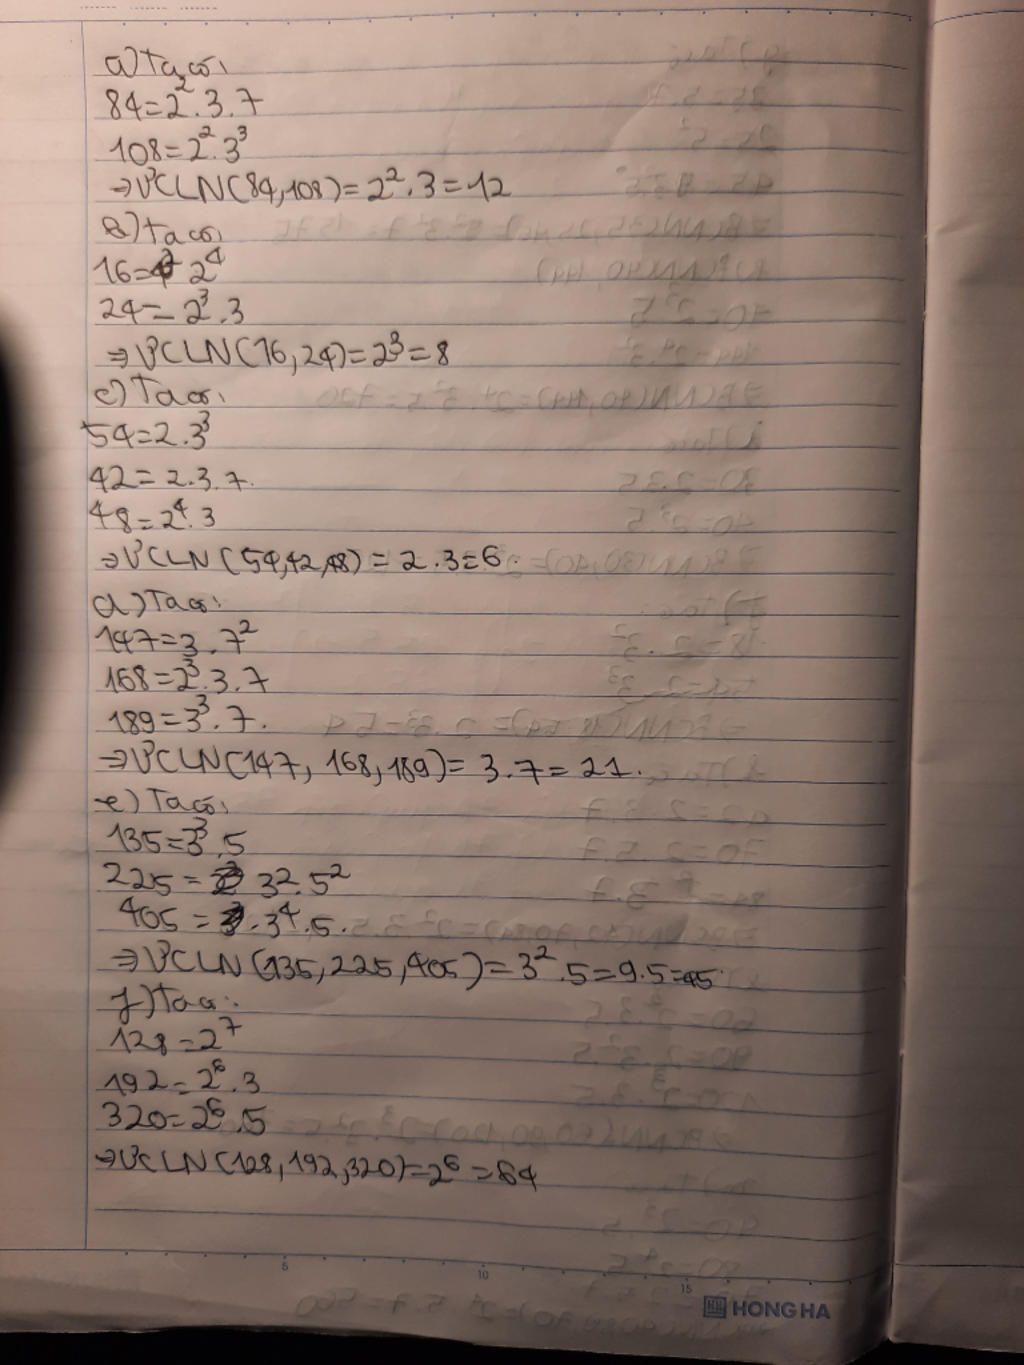 a) Ta có:
84=2².3.7
108=2².3³
⇒ƯCLN(84,108)=2².3=12
b) Ta có:
16= 2⁴
24=2³.3
⇒ƯCLN(16,24)=2³=8
c) Ta có:
54=2.3³
42=2.3.7.
48=2⁴.3
⇒ƯCLN(54,42,48)=2.3=6.
d) Ta có:
147=3.7²
168=2³.3.7
189=3³.7.
⇒ƯCLN(147, 168, 189)=3.7=21.
e) Ta có:
135=3³.5
225= 3².5²
405= .3⁴.5.
⇒ƯCLN(135,225,405)=3².5=9.5=45.
f) Ta có:
128=2⁷
192=2⁶.3
320=2⁶.5
⇒ƯCLN(128,192,320)=2⁶=64
5 10 15
HONG HA